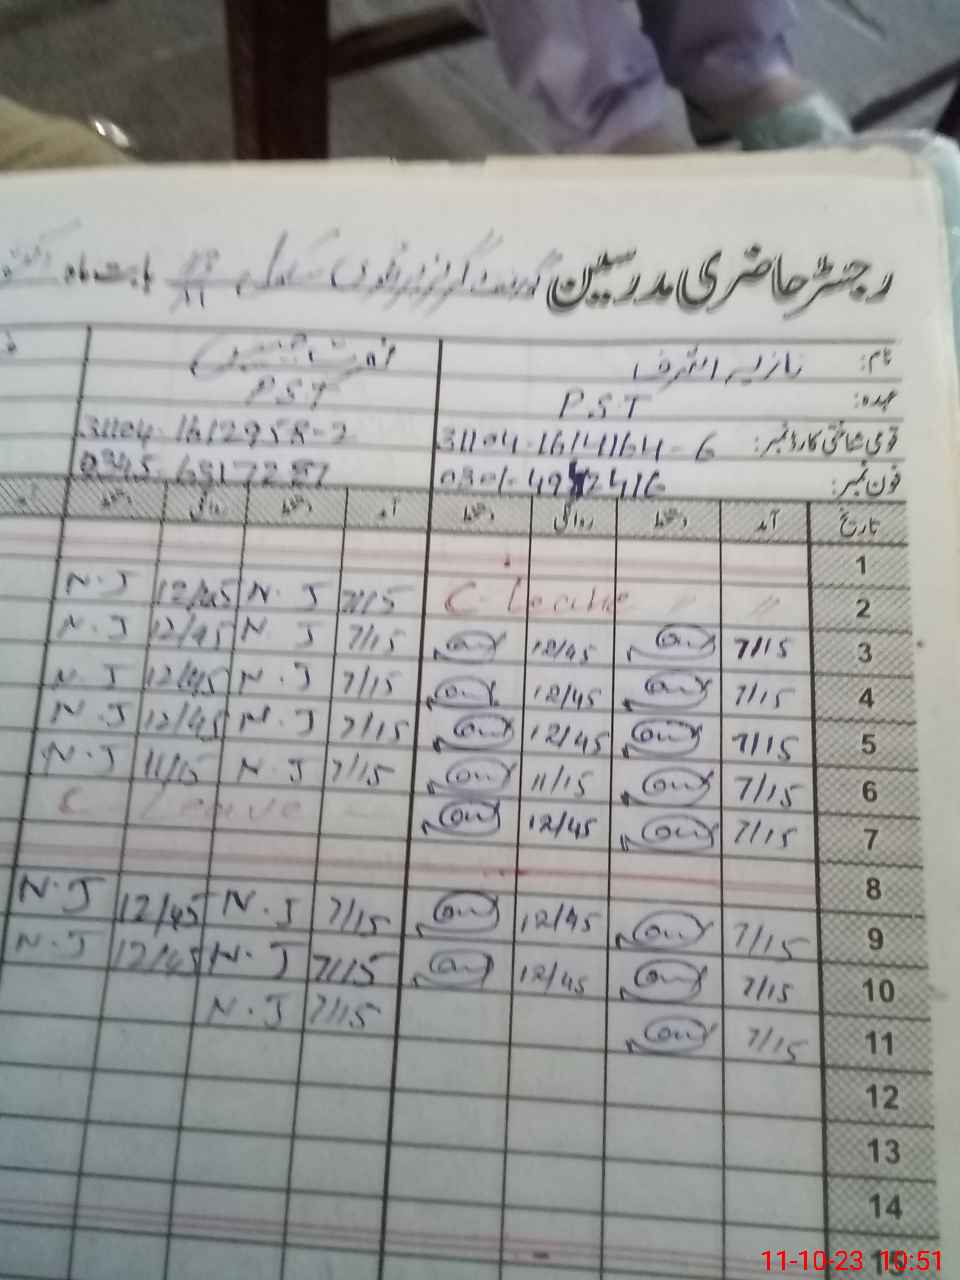 رجسٹر حاضری مدرسین گورنمنٹ گرلز پرائمری سکول بابت ماہ
نام: نازیہ اشرف
عہدہ: P.S.T P.S.T
قومی شناختی کارڈ نمبر: 31104-16141164-6 31104-1612958-2
فون نمبر:
تاریخ آمد دستخط روانگی دستخط آمد دستخط روانگی دستخط
1
2 〃 〃 C-Leave 7/15 N.J 12/45 N.J
3 7/15 12/45 7/15 N.J 12/45 N.J
4 7/15 12/45 7/15 N.J 12/45 N.J
5 7/15 12/45 7/15 N.J 12/45 N.J
6 7/15 11/15 7/15 N.J 11/15 N.J
7 7/15 12/45 C-Leave
8
9 7/15 12/45 7/15 N.J 12/45 N.J
10 7/15 12/45 7/15 N.J 12/45 N.J
11 7/15 7/15 N.J
12
13
14
15
11-10-23 10:51